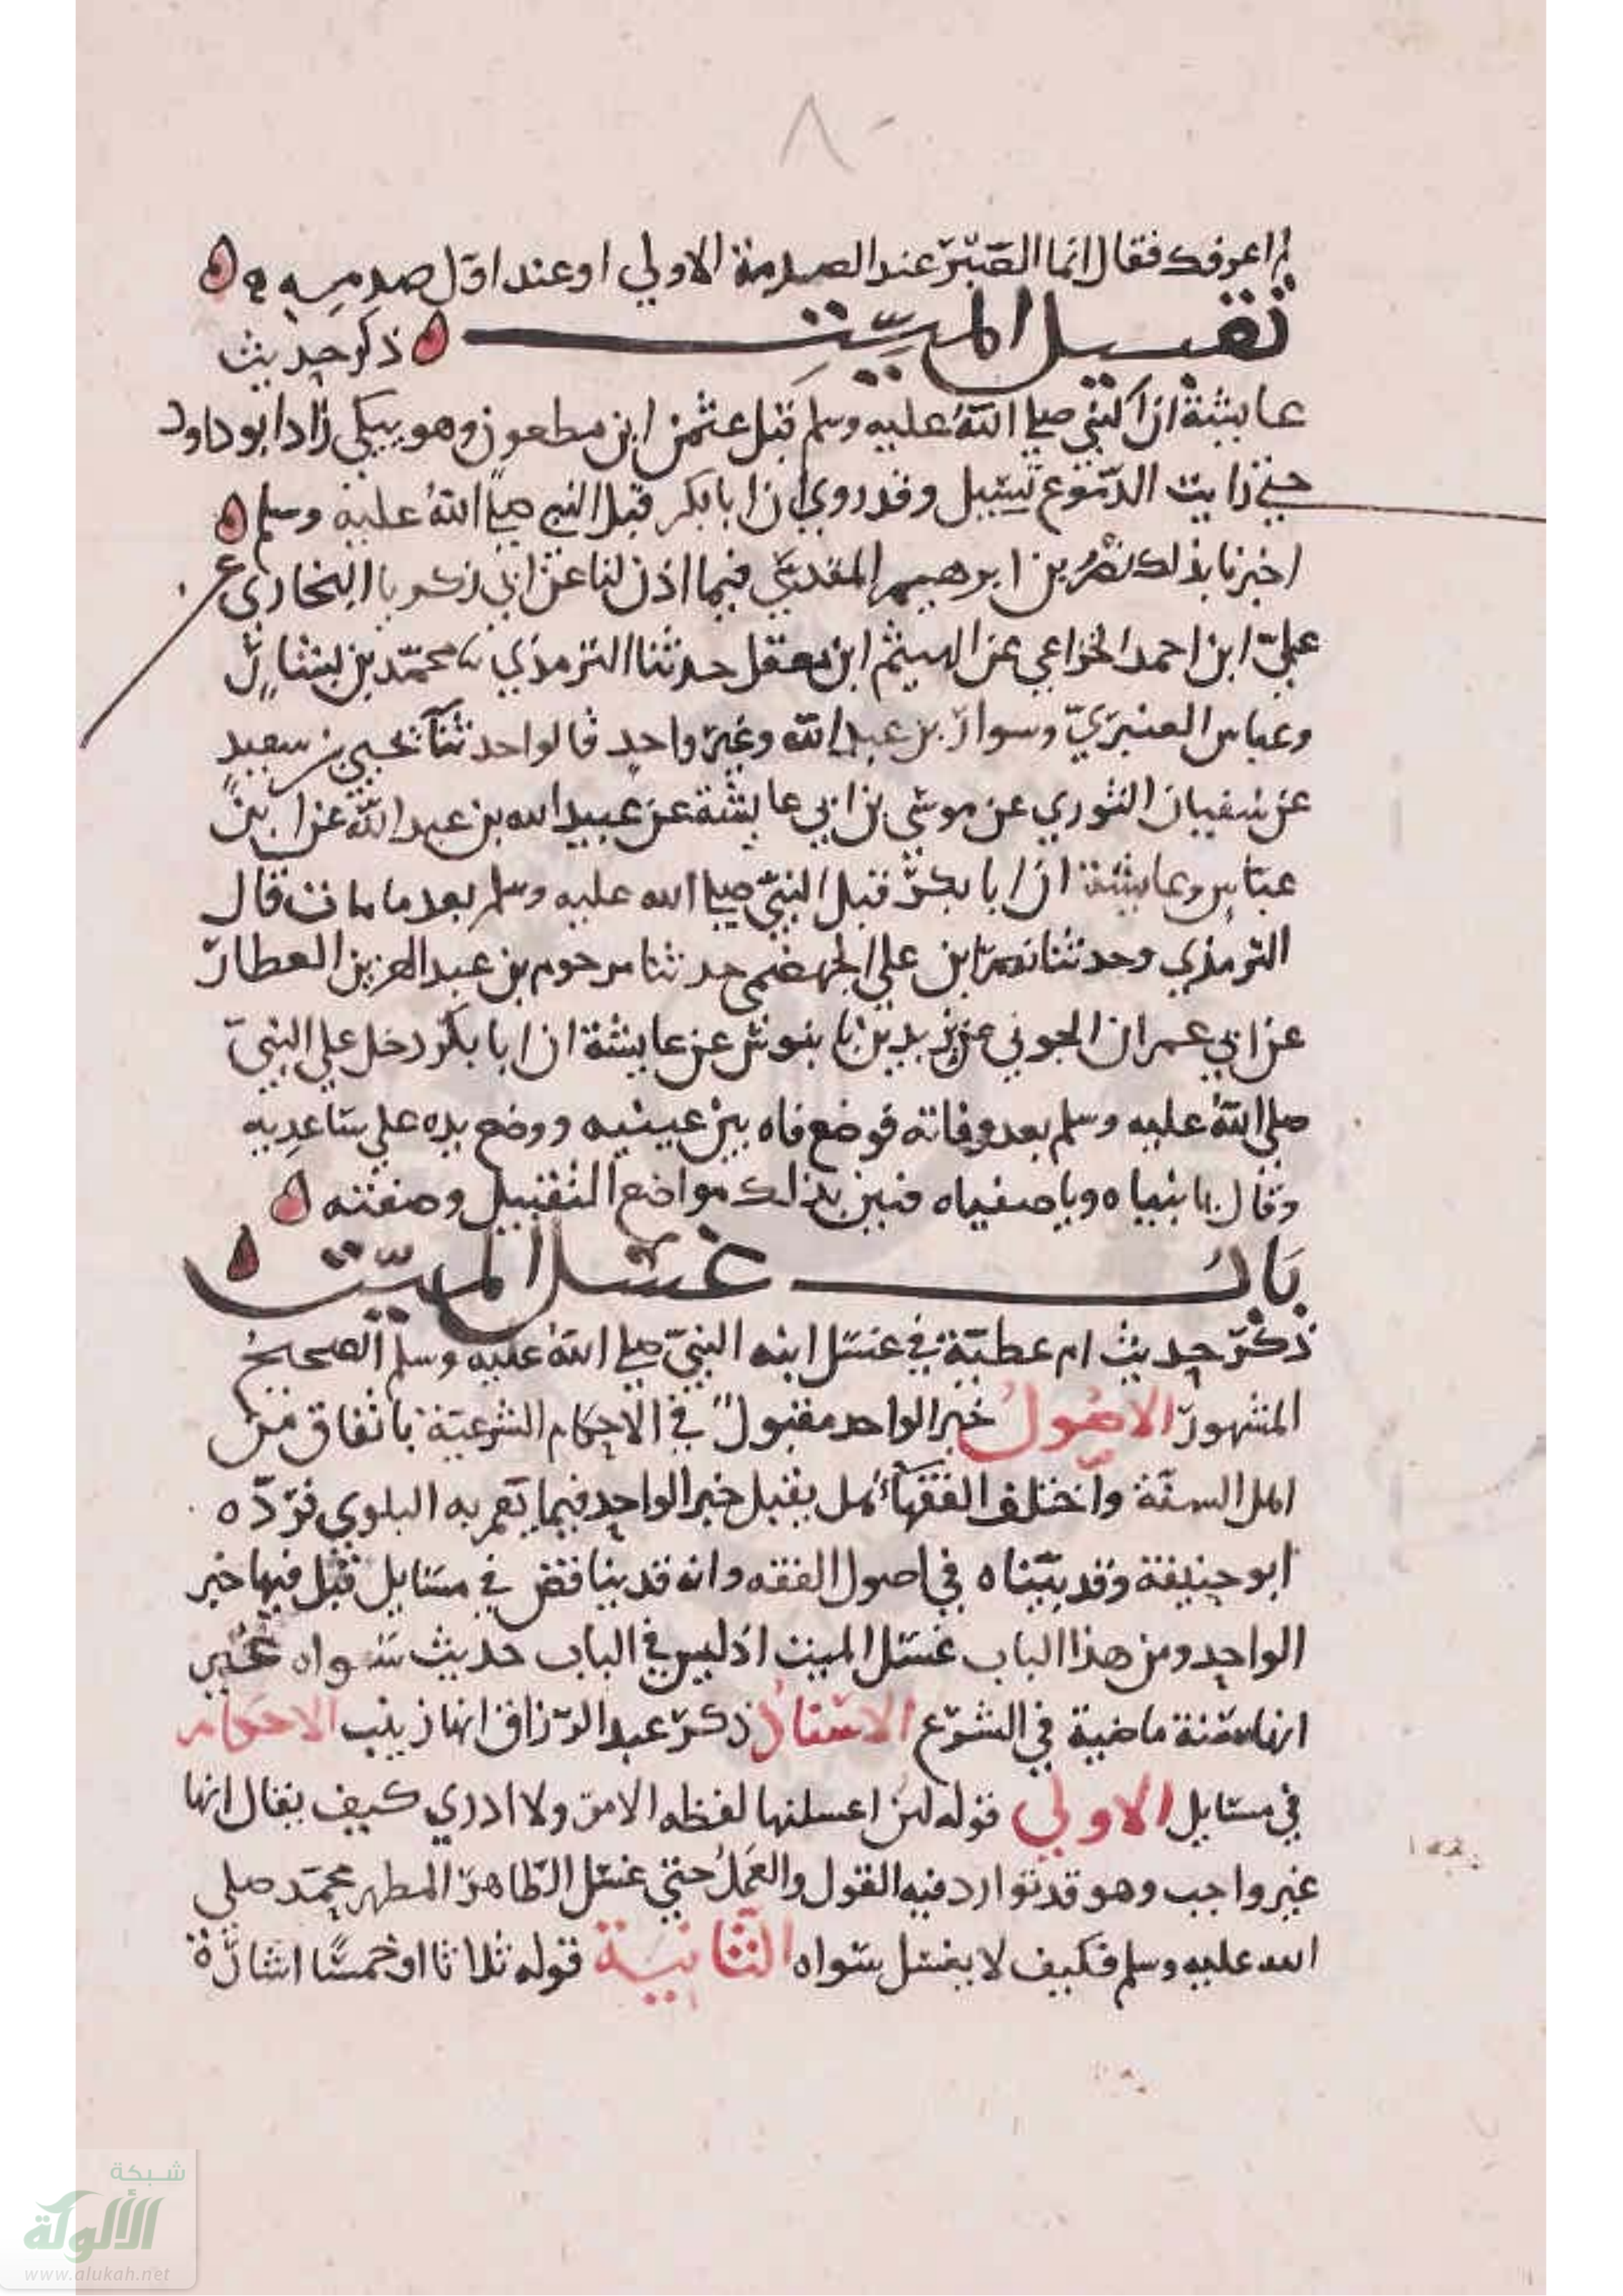 ٨
لم اعرفك فقال انما الصبر عند الصدمة الاولي او عند اول صدمه
تقبيل الميت ذكر حديث
عايشة ان النبي صلي الله عليه وسلم قبل عثمن ابن مطعون وهو يبكي زاد ابو داود
حتي رايت الدموع تسيل وقد روي ان ابا بكر قبل النبي صلي الله عليه وسلم
اخبرنا بذلك نصر بن ابرهيم المقدسي فيما اذن لنا عن ابي زكريا البخاري عن
علي ابن احمد الخزاعي عن الهيثم ابن معقل حدثنا الترمذي محمد بن بشار
وعباس العنبري وسوار بن عبد الله وغير واحد قالوا حدثنا يحيي بن سعيد
عن سفيان الثوري عن موسي بن ابي عايشة عن عبيد الله بن عبد الله عن ابن
عباس وعايشة ان ابا بكر قبل النبي صلي الله عليه وسلم بعد ما مات قال
الترمذي وحدثنا نصر ابن علي الجهضمي حدثنا مرحوم بن عبد العزيز العطار
عن ابي عمران الجوني عن يزيد بن بابنوس عن عايشة ان ابا بكر دخل علي النبي
صلي الله عليه وسلم بعد وفاته فوضع فاه بين عينيه ووضع يده علي ساعديه
وقال يا نبياه ويا صفياه فبين بذلك مواضع التقبيل وصفته
باب غسل الميت
ذكر حديث ام عطية في غسل ابنه النبي صلي الله عليه وسلم الصحيح
المشهور الاصول خبر الواحد مقبول في الاحكام الشرعية باتفاق من
اهل السنة واختلف الفقهآء هل يقبل خبر الواحد فيما تعم به البلوي فرده
ابو حنيفة وقد بيناه في اصول الفقه وانه قد يناقض في مسايل قبل فيها خبر
الواحد ومن هذا الباب غسل الميت اذ ليس في الباب حديث سواه غير
انها سنة ماضية في الشرع الاسناد ذكر عبد الرزاق انها زينب الاحكام
في مسايل الاولي قوله لهن اغسلنها لفظه الامر ولا ادري كيف يقال انها
غير واجب وهو قد توارد فيه القول والعمل حتي غسل الطاهر المطهر محمد صلي
الله عليه وسلم فكيف لا يغسل سواه الثانية قوله ثلاثا او خمسا اشارة
شبكة
الألوكة
www.alukah.net